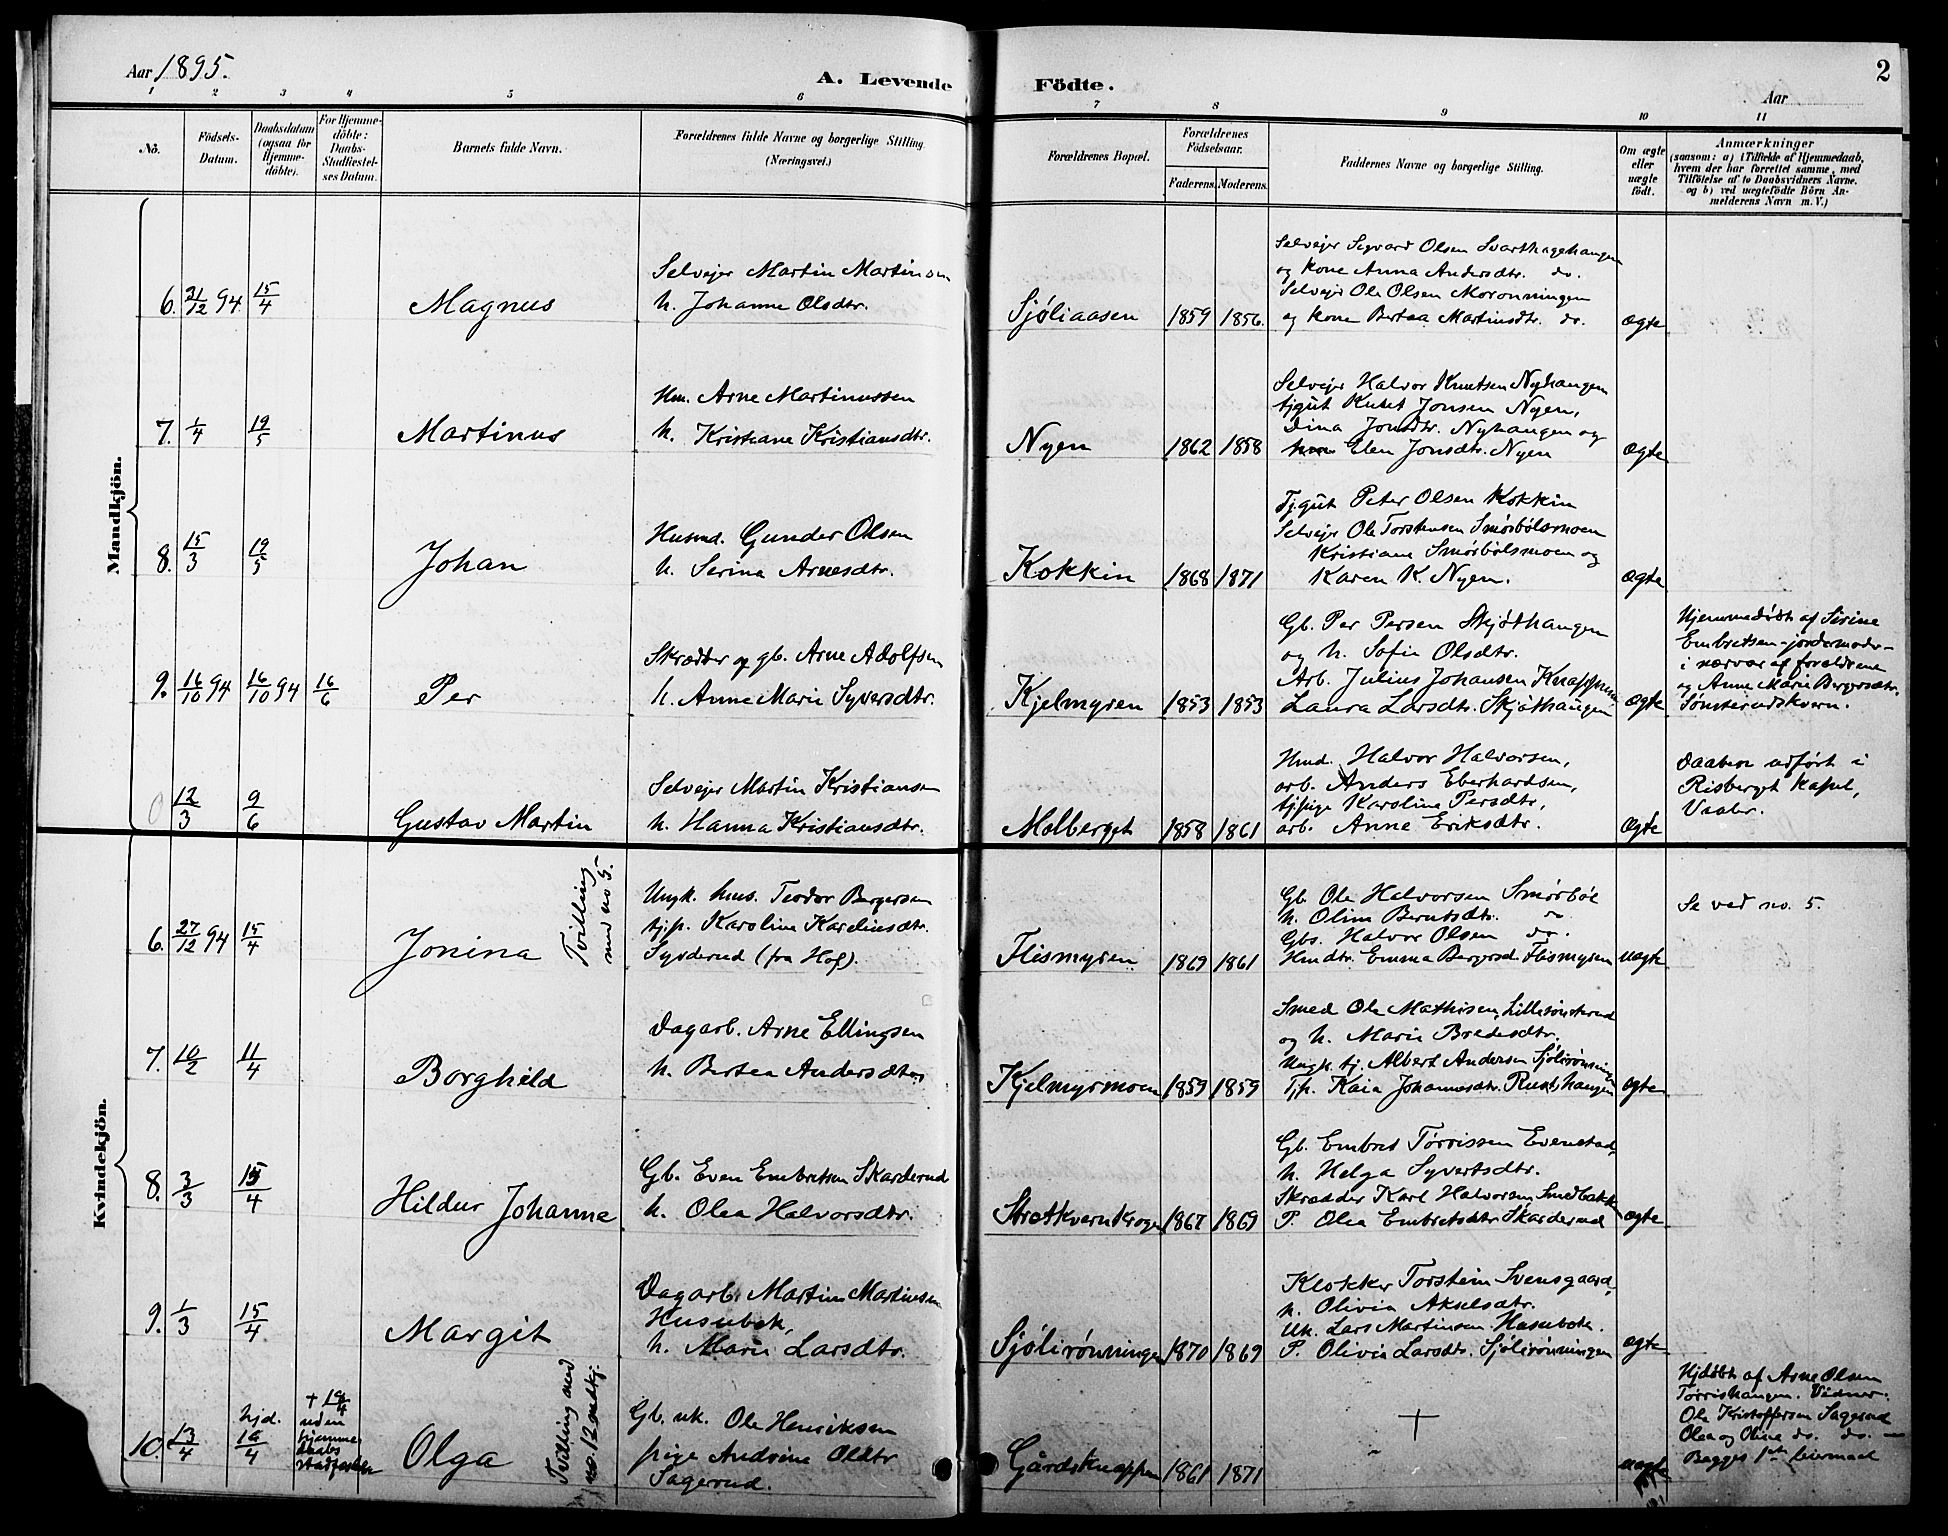 Aar 1895.
A. Levende
Födte.
Aar
2
1 2 3 4 5 6 7 8 9 10 11
No.
Födsels-
Datum.
Daabsdatum
(ogsaa for
Hjemme-
döbte).
For Hjemme-
döbte:
Daabs-
Stadfæstel-
ses Datum.
Barnets fulde Navn.
Forældrenes fulde Navne og borgerlige Stilling.
(Næringsvei.)
Forældrenes Bopæl.
Forældrenes
Födselsaar.
Faderens. Moderens.
Faddernes Navne og borgerlige Stilling.
Om ægte
eller
uægte
födt.
Anmærkninger
(saasom: a) i Tilfælde af Hjemmedaab,
hvem der har forrettet samme, med
Tilföielse af to Daabsvidners Navne,
og b) ved uægtefödte Börn An-
melderens Navn m. V.)
Mandkjön.
6. 31/12 94. 15/4
Magnus
Selvejer Martin Martinsen
h. Johanne Olsdtr.
Sjøliaasen 1859 1856.
Selvejer Sigvard Olsen Svarthagehaugen
og kone Anna Andersdtr. do.
Selvejer Ole Olsen Moronningen
og kone Bertea Martinsdtr. do.
Ægte
7. 1/4 19/5
Martinus
Hm. Arne Martinussen
h. Kristiane Kristiansdtr.
Nyen 1862 1858
Selvejer Halvor Knutsen Nyhaugen
tjgut Knut Jonsen Nyen,
Dina Jonsdtr. Nyhaugen og
Elen Jonsdtr. Nyen
Ægte
8. 15/3 19/5
Johan
Husmd. Gunder Olsen
h. Serina Arnesdtr.
Kokkin 1868 1871
Tjgut Peter Olsen Kokkin
Selvejer Ole Torstensen Smørbølsmoen
Kristiane Smørbølsmoen og
Karen K. Nyen.
Ægte
9. 16/10 94 16/10 94 16/6
Per
Skrædder og gb. Arne Adolfsen
h. Anne Marie Syversdtr.
Kjelmyren 1853 1853
Gb. Per Persen Skjøthaugen
og h. Sofie Olsdtr.
Arb. Julius Johansen Knappmyren
Laura Larsdtr. Skjøthaugen
Ægte
Hjemmedøbt af Sirine
Embretsen - jordemoder -
i nærvær af forældrene
og Anne Marie Bergersdtr.
Sønsterudskvern.
0 12/3 9/6
Gustav Martin
Selvejer Martin Kristiansen
h. Hanna Kristiansdtr.
Molberget 1858 1861
Hmd. Halvor Halvorsen,
arb. Anders Eberhardsen,
tjpige Karoline Persdtr,
arb. Anne Eriksdtr.
Ægte
Daaben udført i
Risberget Kapel,
Vaaler.
Kvindekjön.
6. 27/12 94 15/4
Jonina
Tvilling
med no 5.
Ungk. hus. Teodor Bergersen
tj.p. Karoline Karelinsdtr.
Syvderud (fra Hof).
Flismyren 1869 1861
Gb. Ole Halvorsen Smørbøl
h. Oline Berntsdtr. do
Gbs. Halvor Olsen do.
Hmdtr. Emma Bergersd. Flismyren
uægte
Se ved no. 5.
7. 10/2 11/4
Borghild
Dagarb. Arne Ellingsen
h. Bertea Andersdtr.
Kjelmyrmoen 1859 1859
Smed Ole Mathisen Lillesønsterud
og h. Marie Bredesdtr.
Ungk. tj. Albert Andersen Sjølirønningen
Tjp. Kaia Johannesdtr. Rusthaugen
ægte
8. 3/3 15/4
Hildur Johanne
Gb. Even Embretsen Skarderud
h. Olea Halvorsdtr.
Stratkvern Krogen 1867 1869
Gb. Embret Tørrissen Evenstad,
h. Helga Syvertsdtr.
Skrædder Karl Halvorsen Smedbakken
P. Olea Embretsdtr. Skarderud
ægte
9. 1/3 15/4
Margit
Dagarb. Martin Martinsen
Husubek,
h. Marie Larsdtr.
Sjølirønningen 1870 1869
Klokker Torstein Svensgaard,
h. Olivia Akselsdtr.
Uk. Lars Martinsen Husubek.
P. Olivia Larsdtr. Sjølirønningen
ægte
10. 13/4 hjd. 18/4
+ 19/4
uden
hjemme
daabs
stadfæstelse
Olga
Tvilling med
no. 12 mdkj.
Gb. uk. Ole Henriksen
pige Andrine Oldtr
Sagerud.
Gårdsknappen 1861 1871
+
uægte
Hjdøbt af Arne Olsen
Tørrishaugen. Vidner:
Ole Kristoffersen Sagerud
Olea og Oline do. do. -
Begges 1ste leiermaal